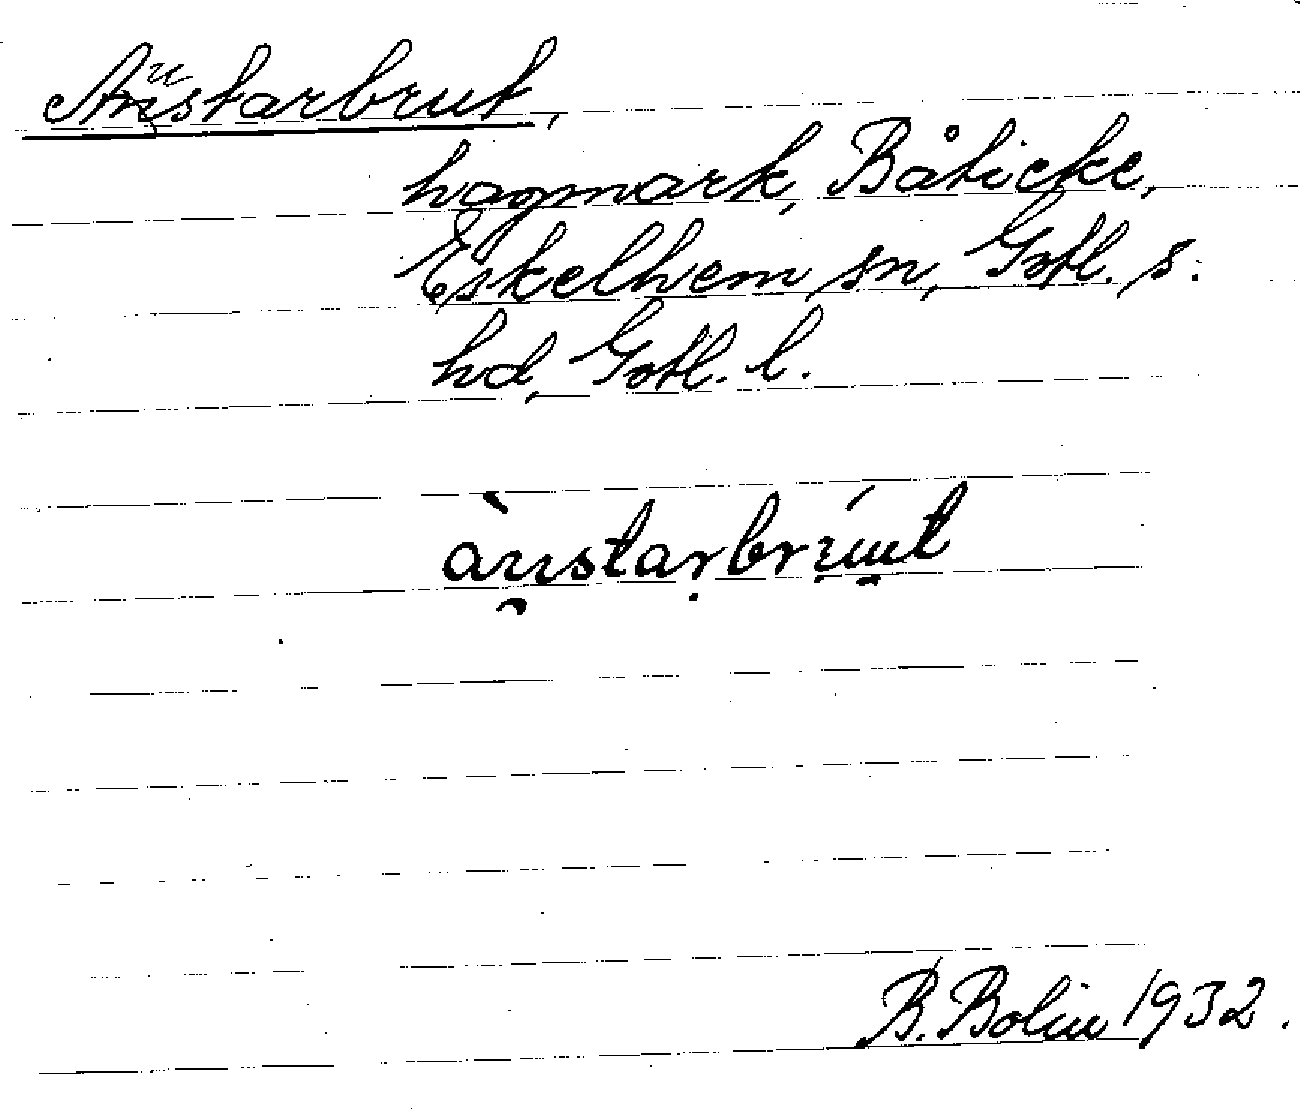 Austarbrut,
hagmark, Båticke,
Eskelhem sn, Gotl. s.
hd, Gotl. l.
B. Bolin 1932.